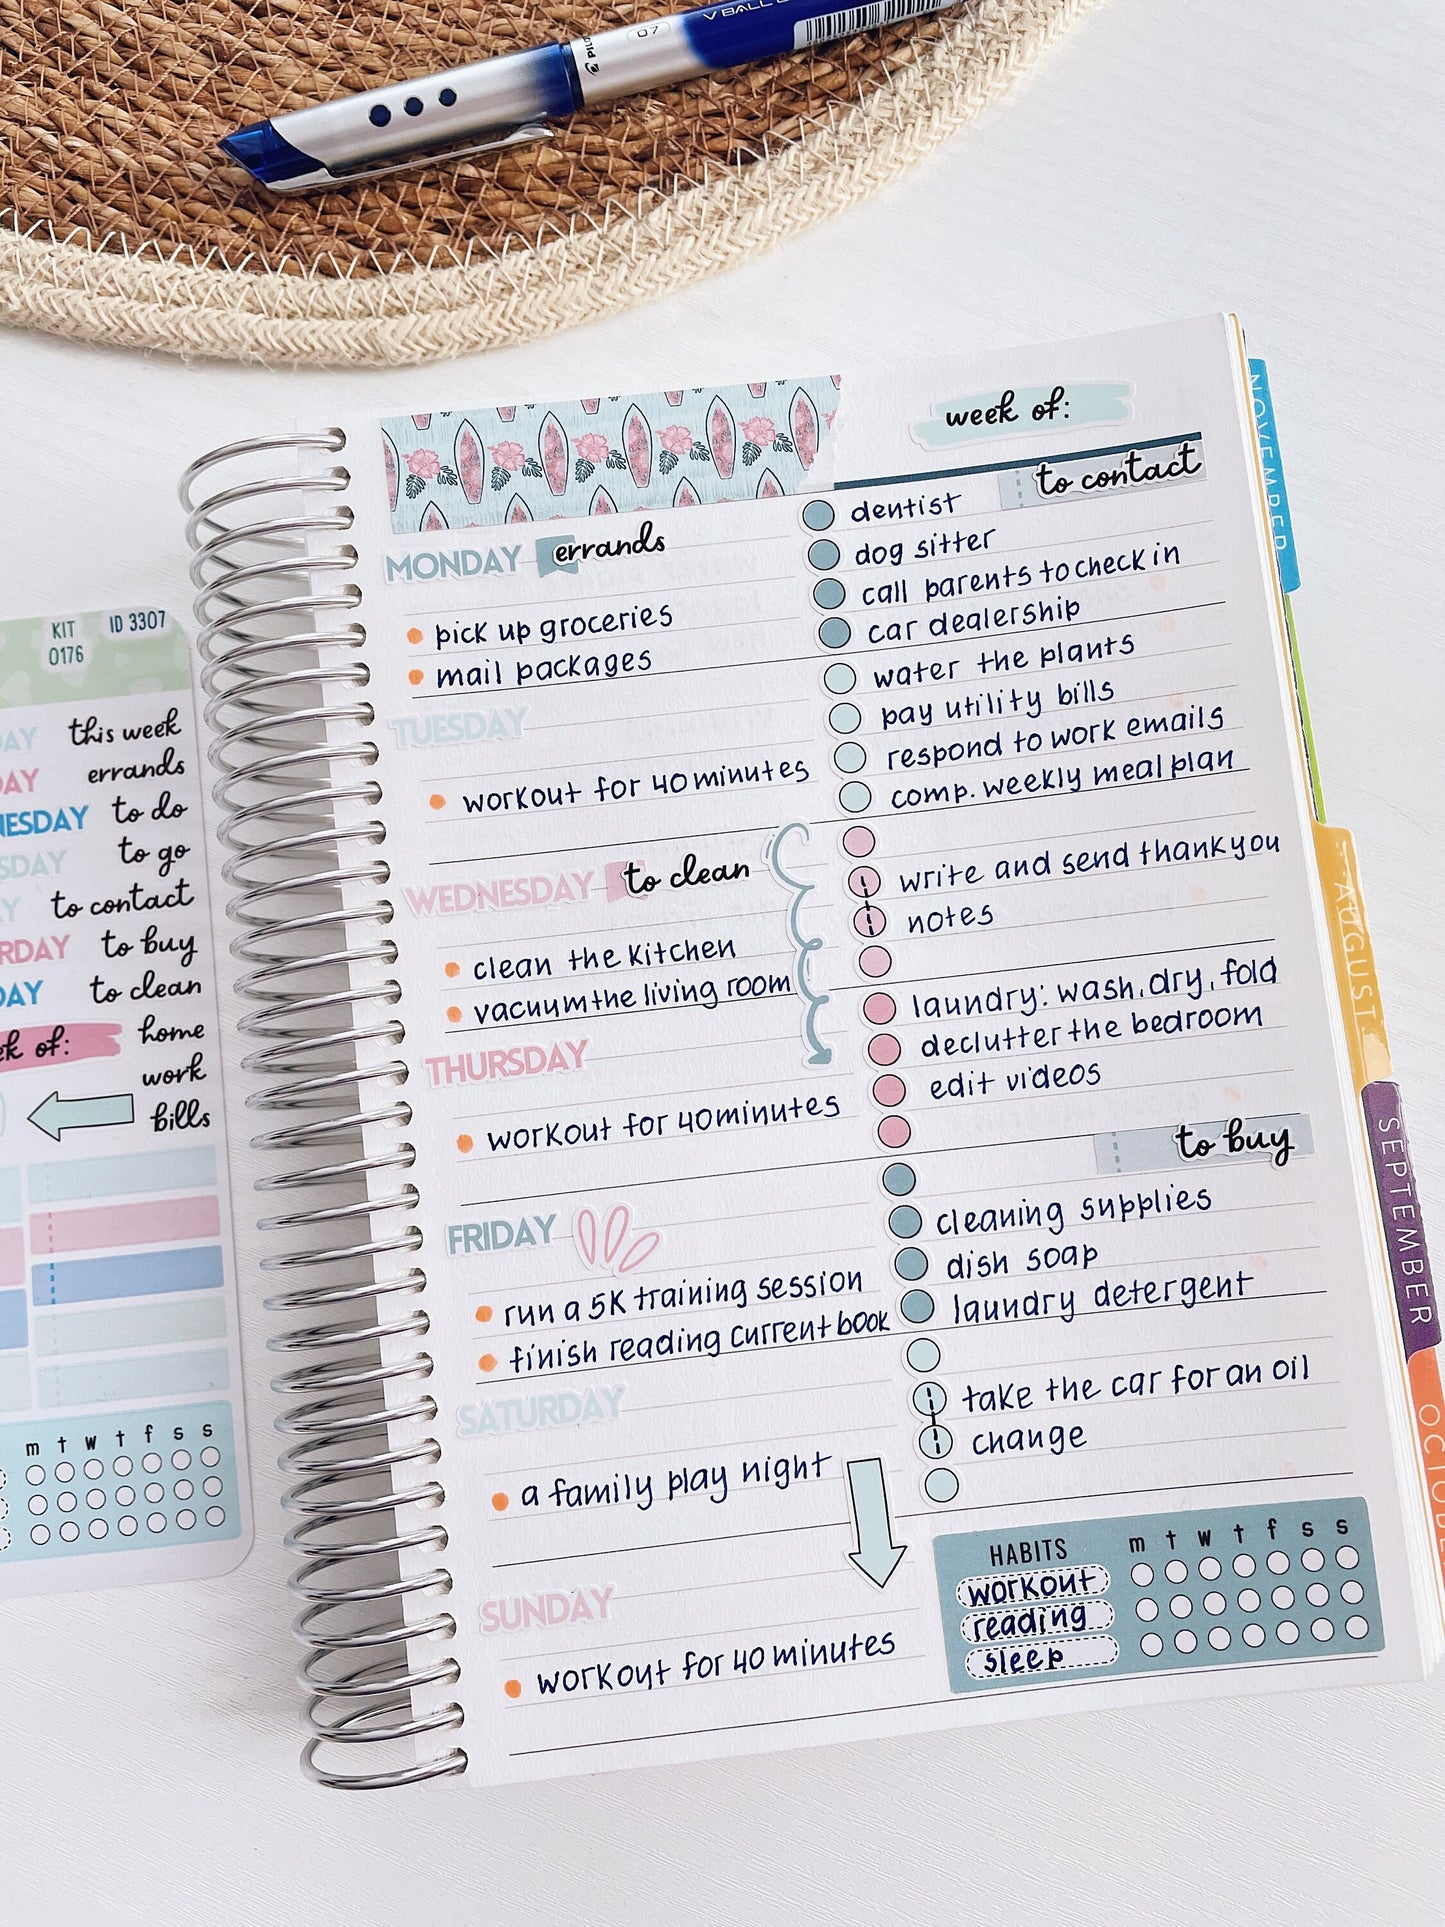 V BALL
07
PILO
week of:
to contact
MONDAY errands
pick up groceries
mail packages
TUESDAY
workout for 40 minutes
WEDNESDAY to clean
clean the kitchen
vacuum the living room
THURSDAY
workout for 40 minutes
FRIDAY
run a 5K training session
finish reading current book
SATURDAY
a family play night
SUNDAY
workout for 40 minutes
dentist
dog sitter
call parents to check in
car dealership
water the plants
pay utility bills
respond to work emails
comp. weekly meal plan
write and send thank you
notes
laundry: wash, dry, fold
declutter the bedroom
edit videos
to buy
cleaning supplies
dish soap
laundry detergent
take the car for an oil
change
HABITS m t w t f s s
workout
reading
sleep
NOVEMBER
AUGUST
SEPTEMBER
OCTOBE
KIT
0176
ID 3307
AY this week
DAY errands
NESDAY to do
SDAY to go
Y to contact
RDAY to buy
DAY to clean
ek of: home
work
bills
m t w t f s s